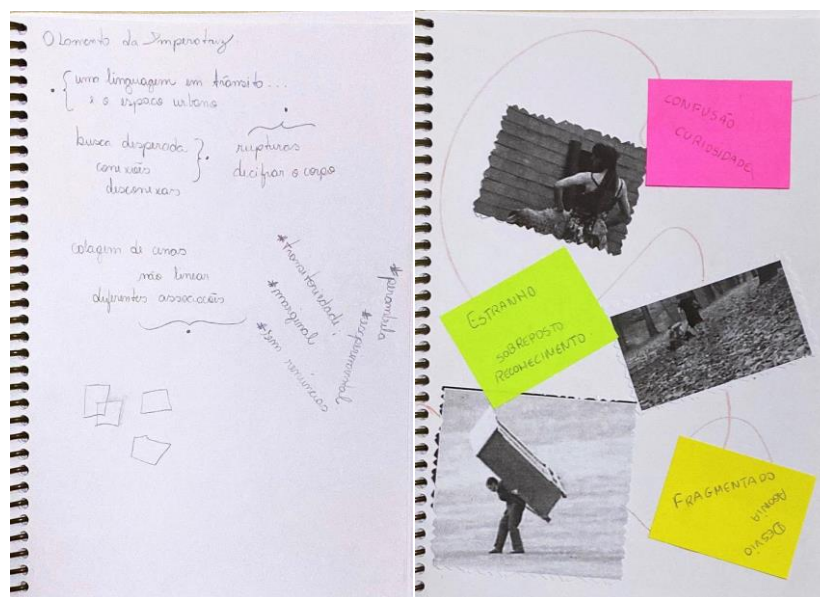 O Lamento da Imperatriz
uma linguagem em trânsito...
e o espaço urbano
busca desperada
conexões
desconexas
rupturas
decifrar o corpo
colagem de cenas
não linear
diferentes associações
*transitoriedade
*marginal
*sem
*experimental
*perambula
CONFUSÃO
CURIOSIDADE
ESTRANHO
SOBREPOSTO
RECONHECIMENTO
FRAGMENTADO
AGONIA
DESVIO